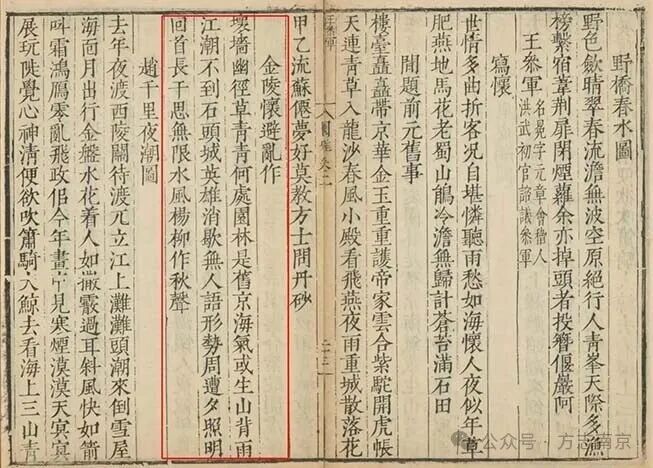 野橋春水圖
野色斂晴翠春流澹無波空原絕行人青峯天際多漁
榜繫宿葦荆扉閉煙蘿余亦掉頭者投簪偃巖阿
王參軍 名冕字元章會稽人
洪武初官諮議參軍
寫懷
世情多曲折客况自堪憐聽雨愁如海懷人夜似年草
肥燕地馬花老蜀山鵑冷澹無歸計蒼苔滿石田
閒題前元舊事
樓臺矗矗帶京華金玉重重護帝家雲合紫駝開虎帳
天連青草入龍沙春風小殿看飛燕夜雨重城散落花
王參軍
國雅卷二
甲乙流蘇僊夢好莫教方士問丹砂
金陵懷避亂作
壞墻幽徑草青青何處園林是舊京海氣或生山背雨
江潮不到石頭城英雄消歇無人語形勢周遭夕照明
回首長干思無限水風楊柳作秋聲
趙千里夜潮圖
去年夜渡西陵關待渡兀立江上灘灘頭潮來倒雪屋
海面月出行金盤水花着人如撒霰過耳斜風快如箭
叫霜鴻鴈零亂飛政佀今年畫中見寒煙漠漠天冥冥
展玩陡覺心神清便欲吹簫騎大鯨去看海上三山青
公众号·方志南京